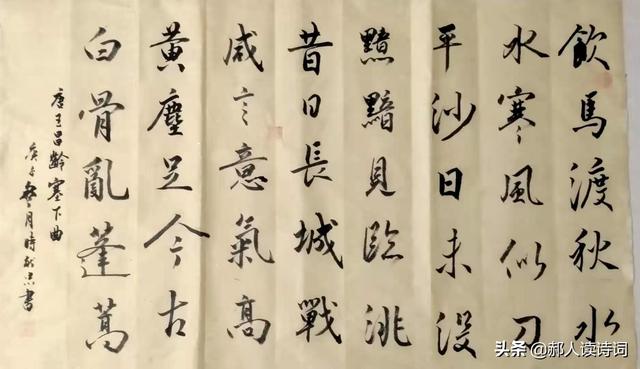 飲馬渡秋水
水寒風似刀
平沙日未沒
黯黯見臨洮
昔日長城戰
咸言意氣高
黃塵足今古
白骨亂蓬蒿
唐王昌齡塞下曲
月時書
头条 @郝人读诗词